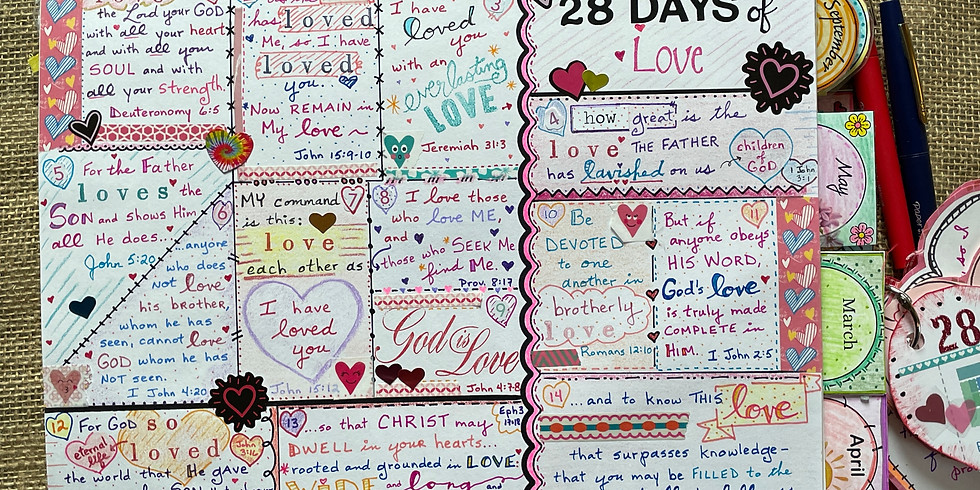 the Lord your GOD
with all your heart
and with all your
SOUL and with
all your strength.
Deuteronomy 6:5
has loved
Me, so I have
loved
you...
Now REMAIN in
My love~
John 15:9-10
3
I have
loved
you
with an
everlasting
LOVE
Jeremiah 31:3
28 DAYS of
Love
4
how great is the
love THE FATHER
has lavished on us
children
of
GOD
1 John
3:1
5
For the Father
loves the
SON and shows Him
all He does...
John 5:20
6
...anyone
who does
Not love
his brother,
whom he has
seen, cannot love
GOD whom he has
NOT seen.
I John 4:20
7
MY command
is this:
love
each other as
I have
loved
you
John 15:12
8
I love those
who love ME,
and
those who SEEK Me
find Me.
Prov. 8:17
9
God is
Love
John 4:7-8
10
Be
DEVOTED
to one
another in
brotherly
love
Romans 12:10
11
But if
anyone obeys
HIS WORD,
God's love
is truly made
COMPLETE in
HIM. I John 2:5
12
For GOD so
eternal
life
loved
John
3:16
the world that He gave
13
...so that CHRIST may
Eph3
17-18
DWELL in your hearts...
rooted and grounded in LOVE
WIDE and long and
14
...and to know THIS love
that surpasses knowledge-
that you may be FILLED to the
September
May
March
April
so I
28